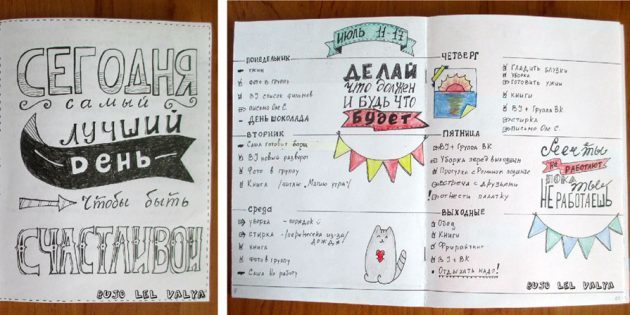 СЕГОДНЯ
самый
ЛУЧШИЙ
ДЕНЬ
Чтобы быть
СЧАСТЛИВОЙ
BUJO LEL VALYA
ИЮЛЬ 11-17
ПОНЕДЕЛЬНИК
Фото в группу
BJ список фильмов
письмо Оле С.
ДЕНЬ ШОКОЛАДА
ВТОРНИК
Саша готовит борщ
BJ новый разворот
Фото в группу
Книга
"Магию утра"
СРЕДА
уборка - порядок
стирка -
из-за/
дождя
книга
фото в группу
Саша на работу
ДЕЛАЙ
что должен
И БУДЬ ЧТО
БУДЕТ
ЧЕТВЕРГ
ГЛАДИТЬ БЛУЗКИ
УБОРКА
ГОТОВИТЬ УЖИН
КНИГИ
BJ + Группа ВК
СТИРКА
ПИСЬМО Оле С.
ПЯТНИЦА
BJ + Группа ВК
Уборка перед выходными
встреча с друзьями
! отнести палатку
ВЫХОДНЫЕ
Обед
Книги
Фрирайтинг
BJ + ВК
ОТДЫХАТЬ НАДО!
не
РАБОТАЮТ
ПОКА
ты
НЕ РАБОТАЕШЬ
BUJO LEL VALYA